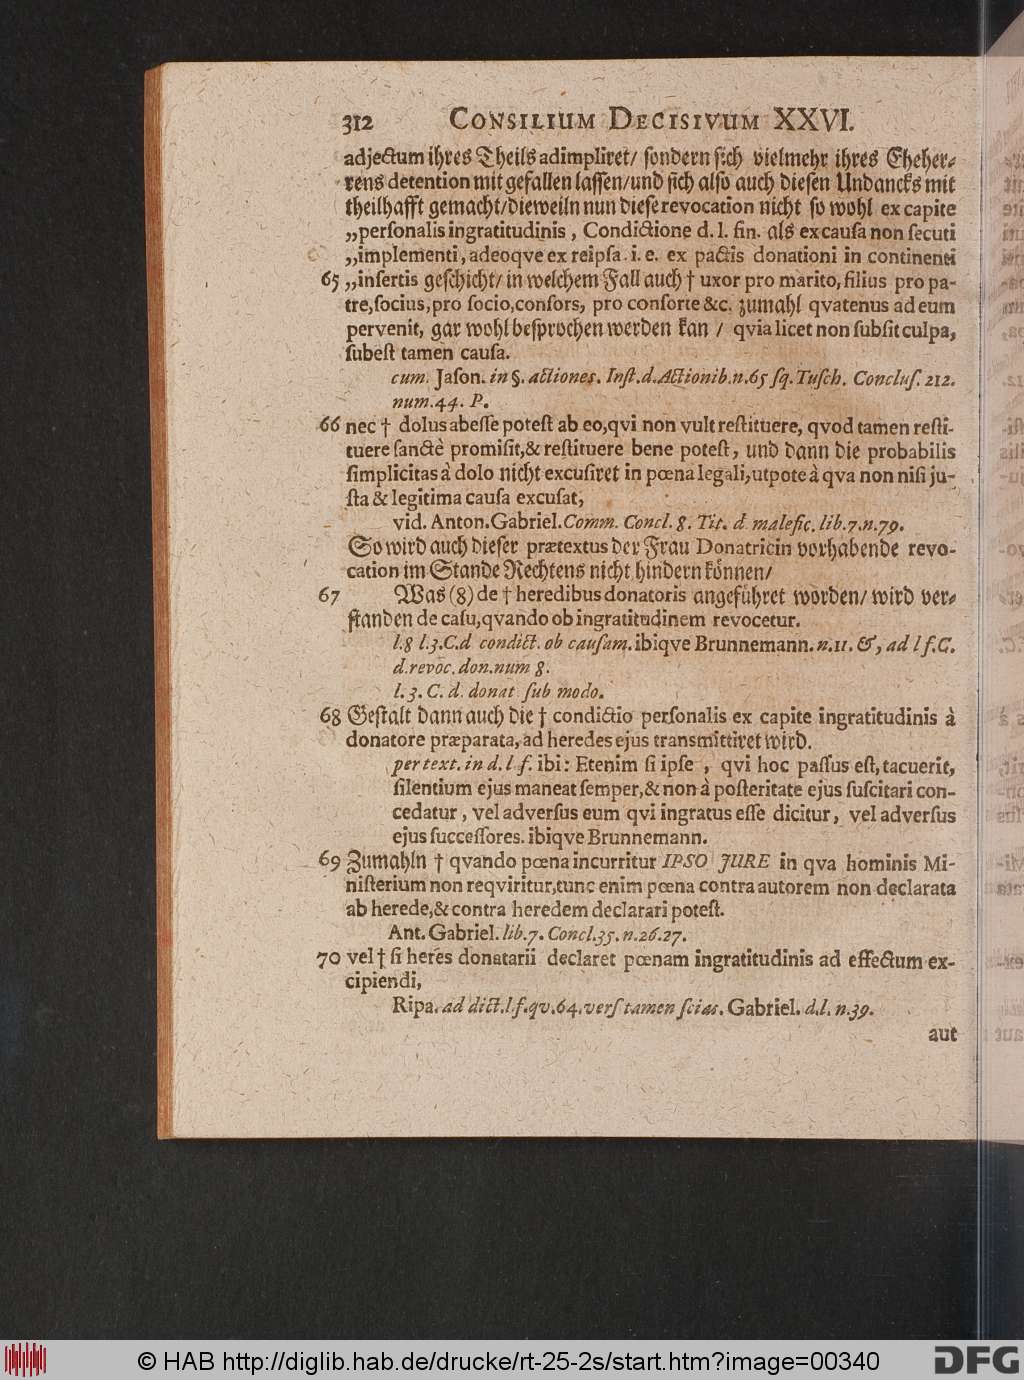 312 CONSILIUM DECISIVUM XXVI.
adjectum ihres Theils adimpliret/ sondern sich vielmehr ihres Eheher-
rens detention mit gefallen lassen/und sich also auch diesen Undancks mit
theilhafft gemacht/dieweiln nun diese revocation nicht so wohl ex capite
„personalis ingratitudinis, Condictione d. l. fin. als ex causa non secuti
„implementi, adeoqve ex reipsa. i. e. ex pactis donationi in continenti
65 „insertis geschicht/ in welchem Fall auch † uxor pro marito, filius pro pa-
tre, socius, pro socio, consors, pro consorte &c. zumahl qvatenus ad eum
pervenit, gar wohl besprochen werden kan / qvia licet non subsit culpa,
subest tamen causa.
cum. Jason. in §. actiones. Inst. d. Actionib. n. 65 sq. Tusch. Conclus. 212.
num. 44. P.
66 nec † dolus abesse potest ab eo, qvi non vult restituere, qvod tamen resti-
tuere sanctè promisit, & restituere bene potest, und dann die probabilis
simplicitas à dolo nicht excusiret in pœna legali, utpote à qva non nisi ju-
sta & legitima causa excusat,
vid. Anton. Gabriel. Comm. Concl. 8. Tit. d malefic. lib. 7. n. 79.
So wird auch dieser prætextus der Frau Donatricin vorhabende revo-
cation im Stande Rechtens nicht hindern können/
67 Was (8) de † heredibus donatoris angeführet worden/ wird ver-
standen de casu, qvando ob ingratitudinem revocetur.
l. 8 l. 3. C. d condict. ob causam. ibiqve Brunnemann. n. 11. &, ad l f. C.
d. revoc. don. num 8.
l. 3. C. d. donat sub modo.
68 Gestalt dann auch die † condictio personalis ex capite ingratitudinis à
donatore præparata, ad heredes ejus transmittiret wird.
per text. in d. l f. ibi: Etenim si ipse, qvi hoc passus est, tacuerit,
silentium ejus maneat semper, & non à posteritate ejus suscitari con-
cedatur, vel adversus eum qvi ingratus esse dicitur, vel adversus
ejus successores. ibiqve Brunnemann.
69 Zumahln † qvando pœna incurritur IPSO JURE in qva hominis Mi-
nisterium non reqviritur, tunc enim pœna contra autorem non declarata
ab herede, & contra heredem declarari potest.
Ant. Gabriel. lib. 7. Concl. 35. n. 26. 27.
70 vel † si heres donatarii declaret pœnam ingratitudinis ad effectum ex-
cipiendi,
Ripa. ad dict. l. f. qv. 64. vers tamen scias. Gabriel. d. l. n. 39.
aut
© HAB http://diglib.hab.de/drucke/rt-25-2s/start.htm?image=00340
DFG